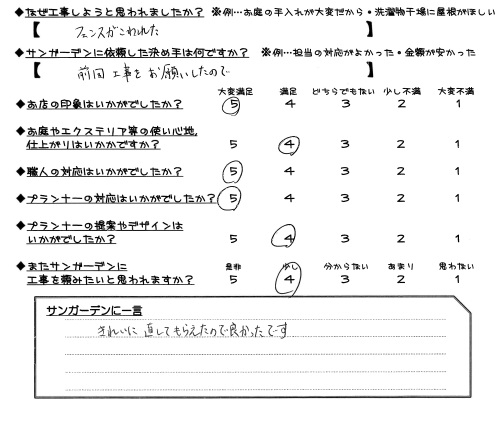 ◆なぜ工事しようと思われましたか? ※例…お庭の手入れが大変だから・洗濯物干場に屋根がほしい
【 フェンスがこわれた 】
◆サンガーデンに依頼した決め手は何ですか? ※例…担当の対応がよかった・金額が安かった
【 前回工事をお願いしたので 】
大変満足 満足 どちらでもない 少し不満 大変不満
◆お店の印象はいかがでしたか? 5 4 3 2 1
◆お庭やエクステリア等の使い心地、
仕上がりはいかかですか? 5 4 3 2 1
◆職人の対応はいかがでしたか? 5 4 3 2 1
◆プランナーの対応はいかがでしたか? 5 4 3 2 1
◆プランナーの提案やデザインは
いかがでしたか? 5 4 3 2 1
◆またサンガーデンに 是非 少し 分からない あまり 思わない
工事を頼みたいと思われますか? 5 4 3 2 1
サンガーデンに一言
きれいに直してもらえたので良かったです